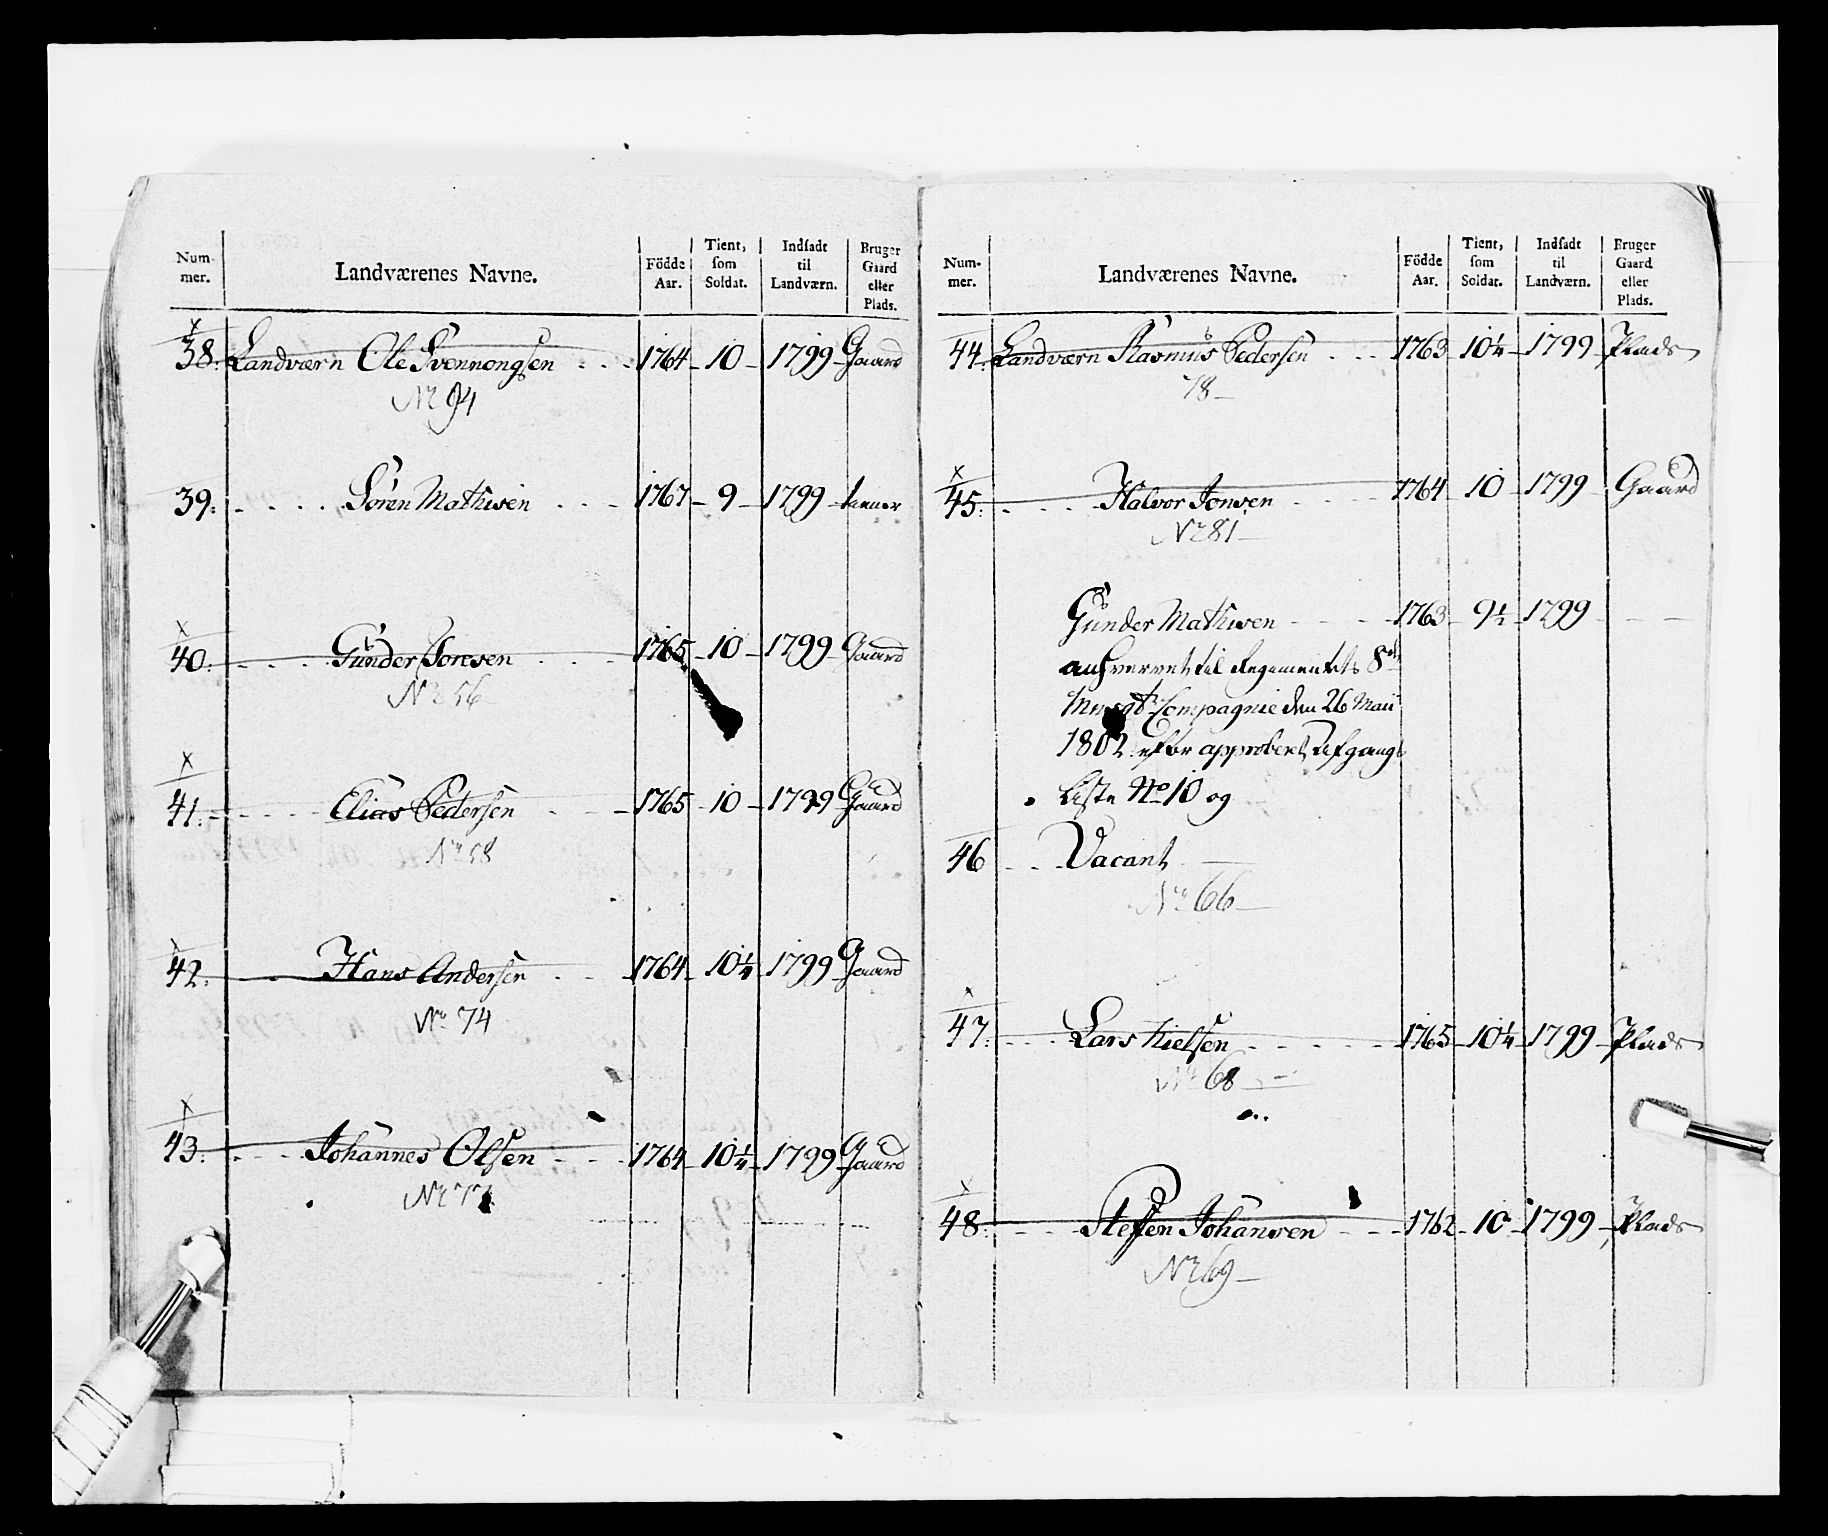 Num-
mer.
Landværenes Navne.
Födde
Aar.
Tient,
som
Soldat.
Indsadt
til
Landværn.
Bruger
Gaard
eller
Plads.
x
38. Landværn Ole Svennongsen 1764 10 1799 Gaard
No 94
39. Sören Mathisen 1767 9 1799
x
40. Gunder Jonsen 1765 10 1799 Gaard
No 56
x
41. Elias Pedersen 1765 10 1799 Gaard
No 58
x
42. Hans Andersen 1764 10¼ 1799 Gaard
No 74
x
43. Johannes Olsen 1764 10¼ 1799 Gaard
No
Num-
mer.
Landværenes Navne.
Födde
Aar.
Tient,
som
Soldat.
Indsadt
til
Landværn.
Bruger
Gaard
eller
Plads.
44. Landværn Rasmus Pedersen 1763 10¼ 1799 Plads
78
x
45. Halvor Jonsen 1764 10 1799 Gaard
No 81
Gunder Mathisen 1763 9½ 1799
til Regimentets 8de
Compagnie den 26 Maii
1802 efter approbert Afgangs
Liste No 10 og
46 Vacant
No 66
x
47. Lars Nielsen 1765 10¼ 1799 Plads
No 68
x
48. Steffen Johansen 1762 10 1799 Plads
No 69